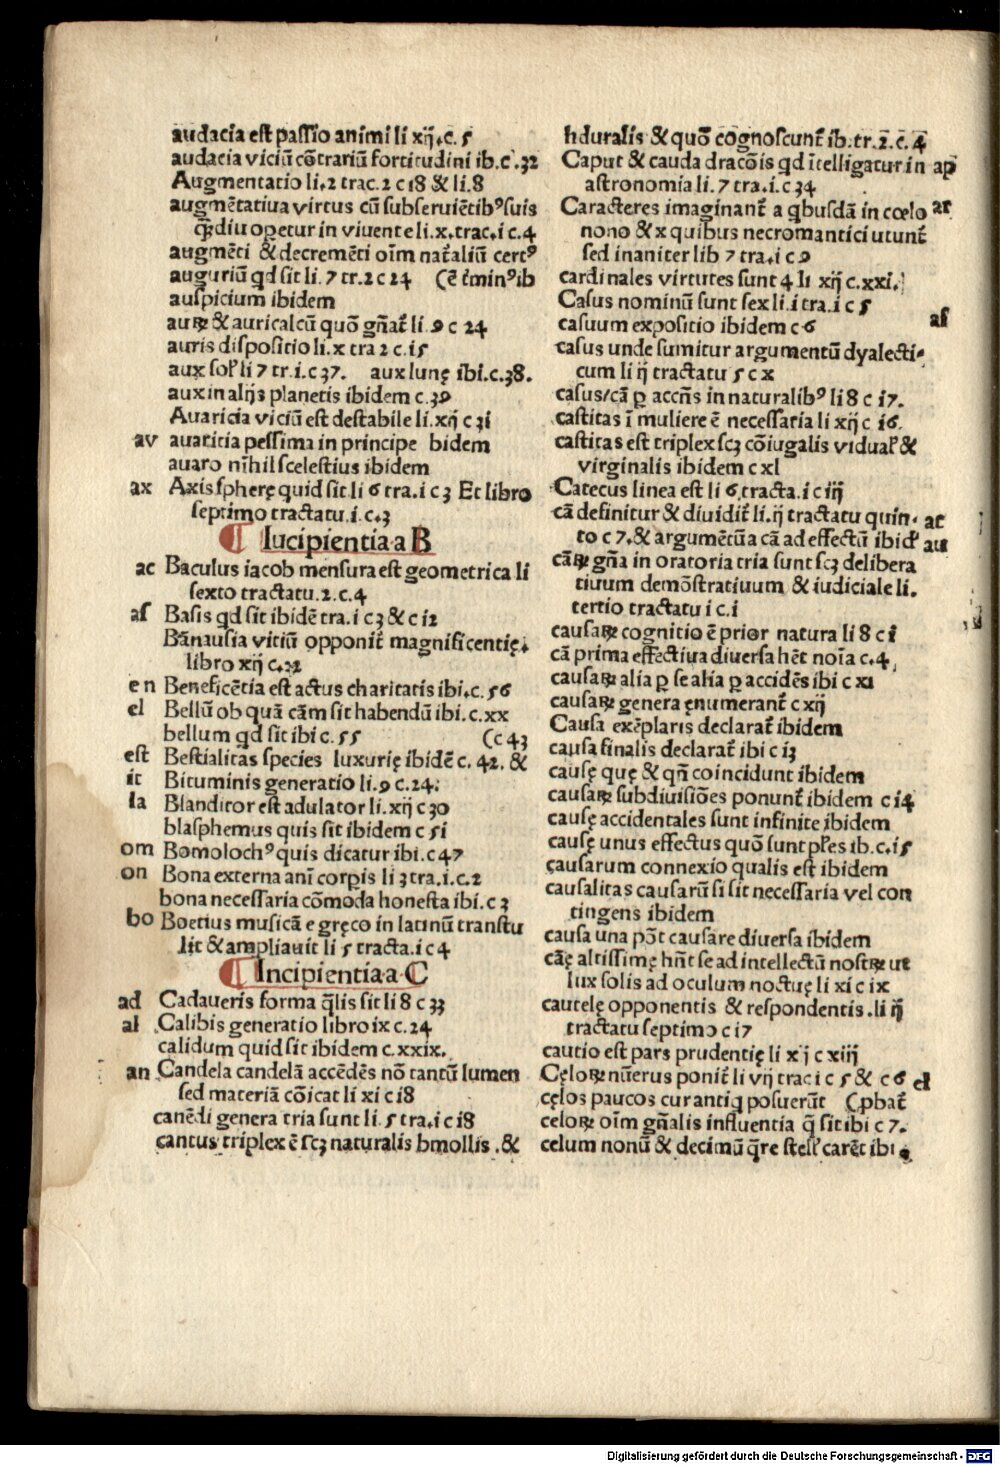 audacia est passio animi li xij.c. 5
audacia viciū cōtrariū fortitudini ib.c .32
Augmentatio li.2 trac.2 c 18 & li.8
augmētatiua virtus cū subseruiētibꝰ suis
q̄ȝdiu opetur in viuente li.x.trac.i c.4
augmēti & decremēti oīm nat̄aliū certꝰ
auguriū qd sit li.7 tr.2 c 24 (ē t̄minꝰ ib
auspicium ibidem
auꝝ & auricalcū quō gn̄at̄ li .9 c 24
auris dispositio li.x tra 2 c.15
aux sol̕ li 7 tr.i.c 37. aux lunę ibi.c.38.
aux in alijs planetis ibidem c.39
Auaricia viciū est destabile li.xij c 31
av auaritia pessima in principe bidem
auaro nīhil scelestius ibidem
ax Axis spherę quid sit li 6 tra.i c 3 Et libro
septimo tractatu.i.c.3
¶ Iucipientia a B
ac Baculus iacob mensura est geometrica li
sexto tractatu.2.c.4
as Basis qd sit ibidē tra.i c 3 & c 12
Bānausia vitiū opponit̄ magnificentię.
libro xij c.32
en Beneficētia est actus charitatis ibi.c. 56
el Bellū ob quā cām sit habendū ibi.c.xx
bellum qd sit ibi c. 55 (c 43
est Bestialitas species luxurię ibidē c. 42. &
it Bituminis generatio li.9 c.24.
la Blanditor est adulator li.xij c 30
blasphemus quis sit ibidem c 51
om Bomolochꝰ quis dicatur ibi.c 47
on Bona externa anī corpis li 3 tra.i.c.2
bona necessaria cōmoda honesta ibi.c 3
bo Boetius musicā e gręco in latinū transtu
lit & ampliauit li 5 tracta.i c 4
¶ Incipientia a C
ad Cadaueris forma q̄lis sit li 8 c 33
al Calibis generatio libro ix c.24
calidum quid sit ibidem c.xxix.
an Candela candelā accēdēs nō tantū lumen
sed materiā cōicat li xi c 18
canēdi genera tria sunt li.5 tra.i c 18
cantus triplex ē scȝ naturalis bmollis .&
hduralis & quō cognoscunt̄ ib.tr.2.c.4
Caput & cauda dracōis qd ītelligatur in ap
astronomia li.7 tra.i.c 34
Caracteres imaginant̄ a qbusdā in cœlo ar
nono & x quibus necromantici utunt̄
sed inaniter lib 7 tra.i c 9
cardinales virtutes sunt 4 li xij c.xxi.
Casus nominū sunt sex li.i tra.i c 5
casuum expositio ibidem c 6 as
casus unde sumitur argumentū dyalecti-
cum li ij tractatu 5 c x
casus/cā ꝑ accn̄s in naturalibꝰ li 8 c 17.
castitas ī muliere ē necessaria li xij c 16.
castitas est triplex scȝ cōiugalis vidual̕ &
virginalis ibidem c xl
Catecus linea est li 6.tracta.i c iij
cā definitur & diuidit̄ li.ij tractatu quin- at
to c 7.& argumētū a cā ad effectū ibid̕ au
cāꝝ gn̄a in oratoria tria sunt scȝ delibera
tiuum demōstratiuum & iudiciale li.
tertio tractatu i c.i
causaꝝ cognitio ē prior natura li 8 c i
cā prima effectiua diuersa hēt noīa c.4
causaꝝ alia ꝑ se alia ꝑ accidēs ibi c xi
causaꝝ genera ęnumerant̄ c xij
Causa exēplaris declarat̄ ibidem
causa finalis declarat̄ ibi c 13
causę quę & qn̄ coincidunt ibidem
causaꝝ subdiuisiões ponunt̄ ibidem c 14
causę accidentales sunt infinite ibidem
causę unus effectus quō sunt pl̕es ib.c.15
causarum connexio qualis est ibidem
causalitas causarū si sit necessaria vel con
tingens ibidem
causa una pōt causare diuersa ibidem
cāę altissimę hn̄t se ad intellectū nostꝝ ut
lux solis ad oculum noctuę li xi c ix
cautelę opponentis & respondentis .li ij
tractatu septimo c 17
cautio est pars prudentię li xij c xiij
Cęloꝝ nūerus ponit̄ li vij trac i c 5 & c 6 el
cęlos paucos cur antiq posuerūt (ꝓbat̄
celoꝝ oīm gn̄alis influentia q̄ sit ibi c 7.
celum nonū & decimū q̄re stell̕ carēt ibi
Digitalisierung gefördert durch die Deutsche Forschungsgemeinschaft - DFG